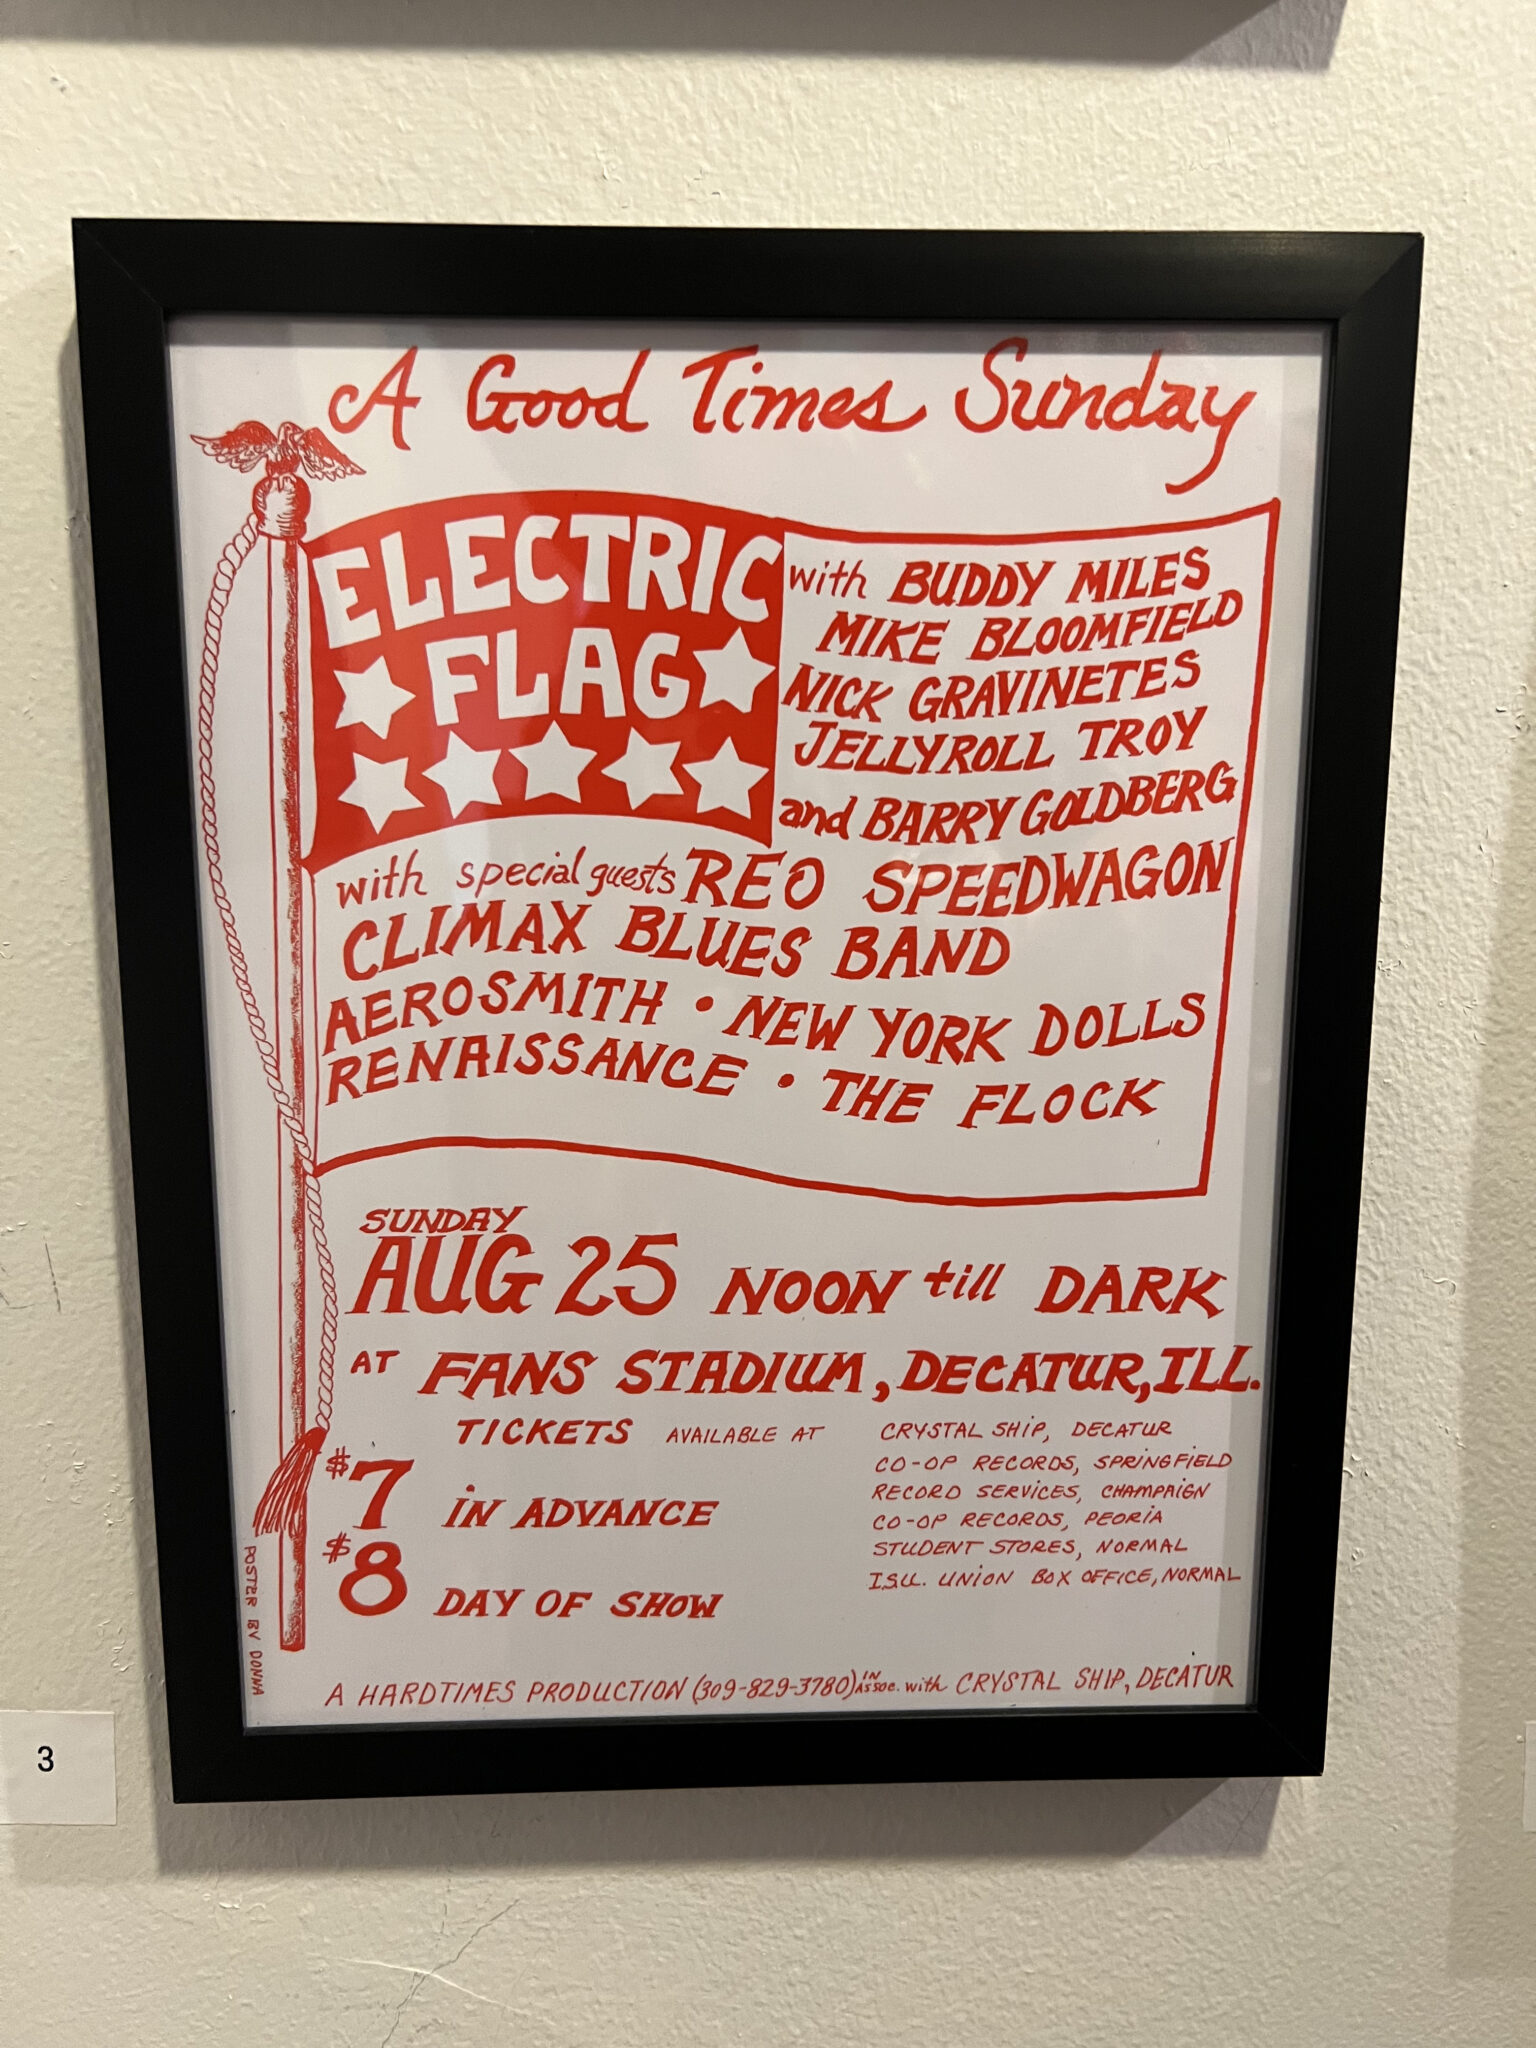 A Good Times Sunday
ELECTRIC
FLAG
with BUDDY MILES
MIKE BLOOMFIELD
NICK GRAVINETES
JELLYROLL TROY
and BARRY GOLDBERG
with special guests REO SPEEDWAGON
CLIMAX BLUES BAND
AEROSMITH • NEW YORK DOLLS
RENAISSANCE • THE FLOCK
SUNDAY
AUG 25 NOON till DARK
AT FANS STADIUM, DECATUR, ILL.
TICKETS AVAILABLE AT
$7 IN ADVANCE
$8 DAY OF SHOW
CRYSTAL SHIP, DECATUR
CO-OP RECORDS, SPRINGFIELD
RECORD SERVICES, CHAMPAIGN
CO-OP RECORDS, PEORIA
STUDENT STORES, NORMAL
I.S.U. UNION BOX OFFICE, NORMAL
POSTER BY DONNA
A HARDTIMES PRODUCTION (309-829-3780) IN ASSOC. with CRYSTAL SHIP, DECATUR
3